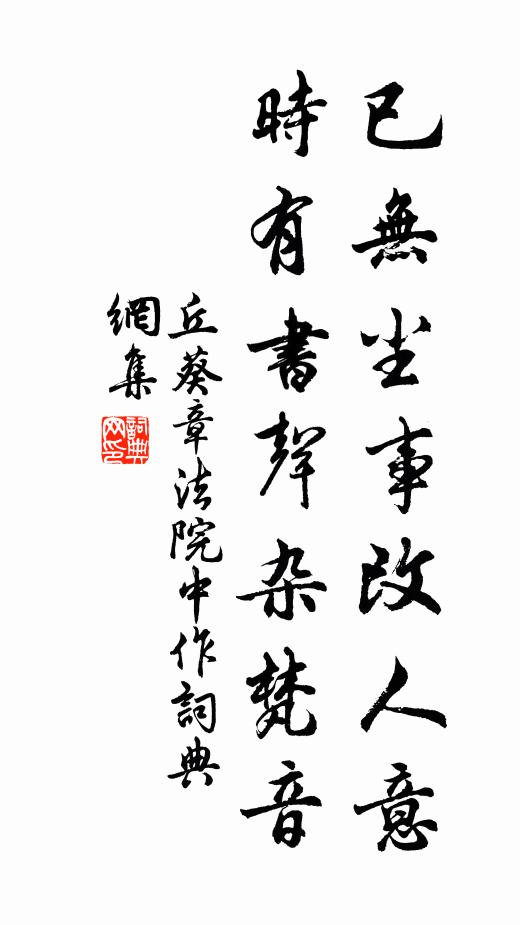 已無尘事改人意
時有書聲杂梵音
丘葵章法院中作詞典
網集
詞典网印